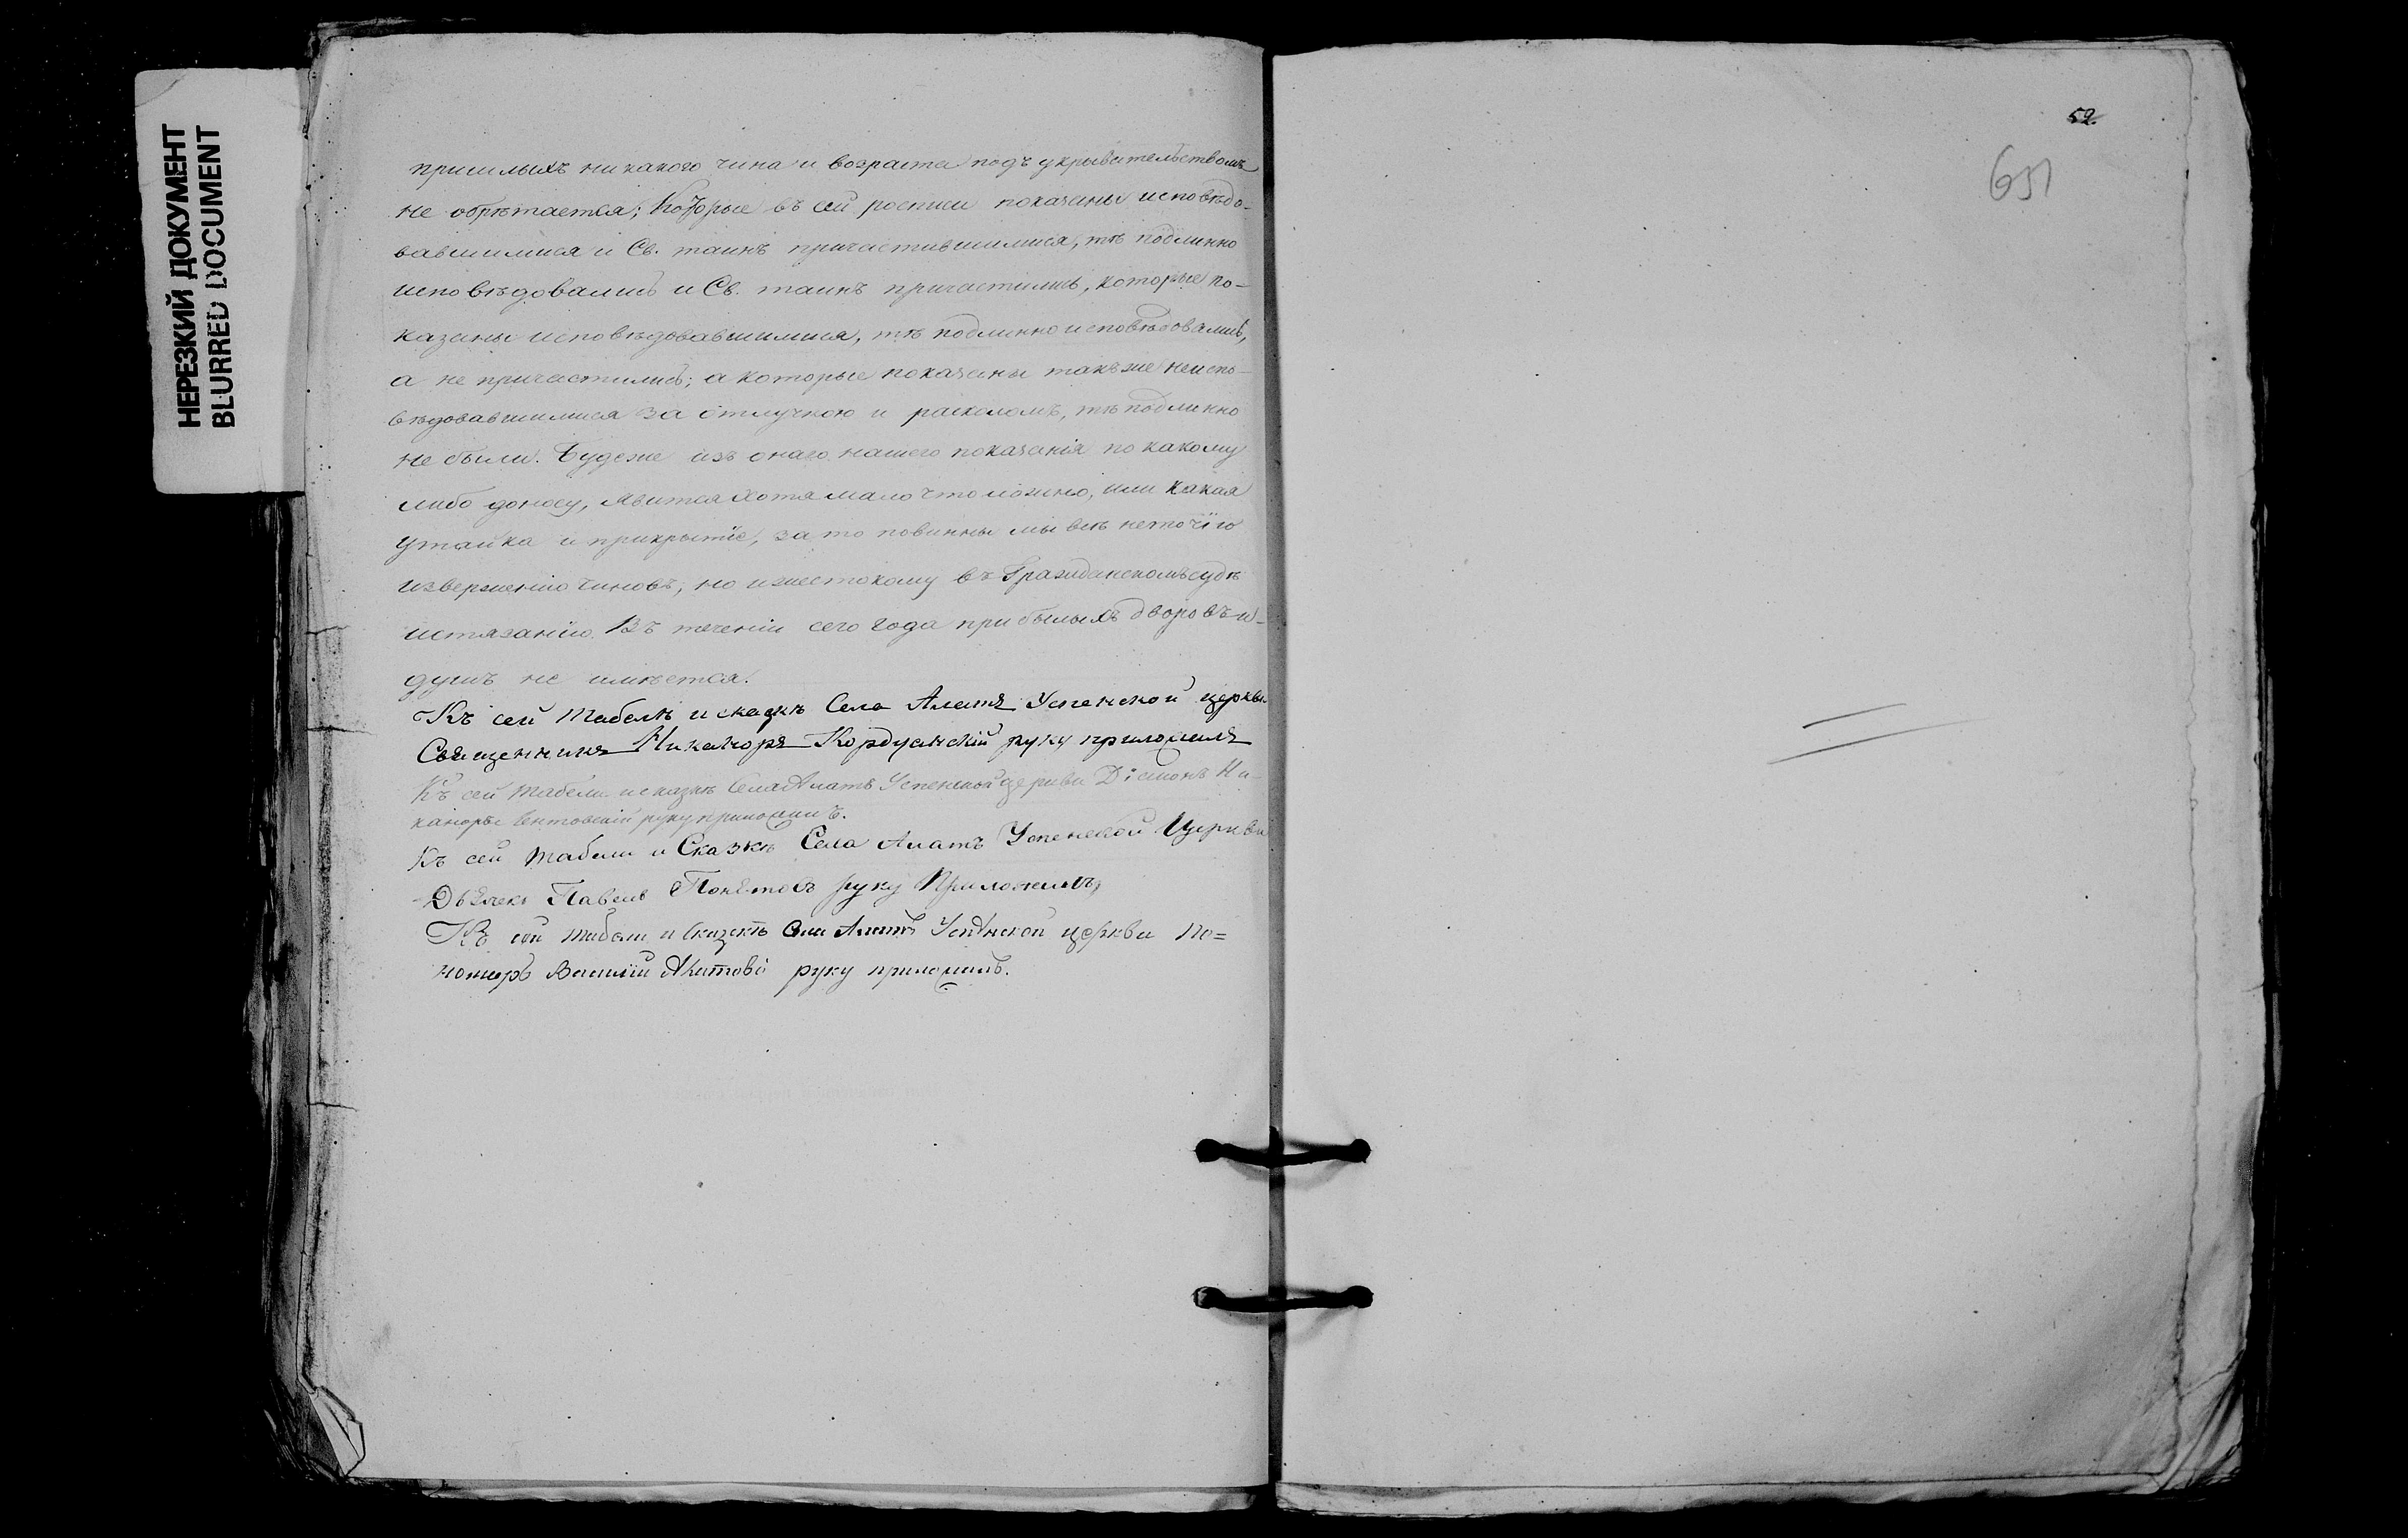 НЕРЕЗКИЙ ДОКУМЕНТ
BLURRED DOCUMENT
пришлыхъ никакого чина и возраста подъ укрывательствомъ
не обрѣтается; Которые въ сей росписи показаны исповѣдо-
вавшимися и Св. таинъ причастившимися, тѣ подлинно
исповѣдовались и Св. таинъ причастились, которые по-
казаны исповѣдовавшимися, тѣ подлинно исповѣдовались,
а не причастились; а которые показаны такъже неиспо-
вѣдовавшимися за отлучкою и расколомъ, тѣ подлинно
не были. Будеже изъ онаго нашего показанія по какому
либо доносу, явится хотя мало что ложно, или какая
утайка и прикрытіе, за то повинны мы всѣ неточію
изверженію чиновъ, но и жестокому въ Гражданскомъ судѣ
истязанію. Въ теченіи сего года прибылыхъ дворовъ и
душъ не имѣется.
Къ сей табелѣ и сказкѣ Села Алатъ Успенской церкви
Священникъ Никаноръ Кордуанскій руку приложилъ
Къ сей табели и сказкѣ Села Алатъ Успенской церкви Діаконъ Ни-
каноръ руку приложилъ.
Къ сей табели и Сказкѣ Села Алатъ Успенской Церкви
Дьячекъ Павелъ руку Приложилъ,
Къ сей табели и сказкѣ Села Алатъ Успенской церкви По=
номарь Василій руку приложилъ.
52.
651